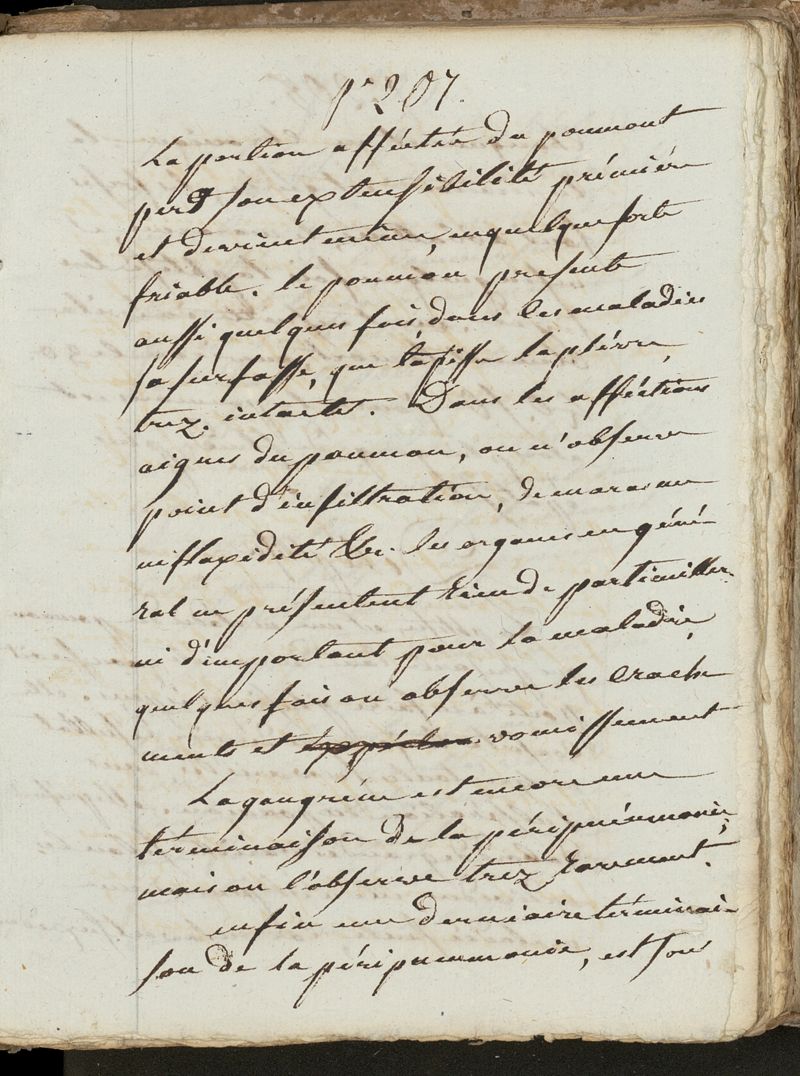 pe 207.
La portion affectée du poumont
perd son extensibilité prémiére
et devient même, en quelque sorte
friable. le poumon presente
aussi quelques fois dans les maladies
sa surfasse, que tapisse la plévre,
trez intacte. Dans les afféctions
aigues du poumon, on n'observe
point d'infiltration, de marasme
ni flaxidité &c. les organes en géné-
ral ne présentent rien de particuiller
ni d'important pour la maladie,
quelques fois on observe les crache
ments et vomissement
La gangréne est encore une
términaison de la péripneumonie,
mais on l'observe trez rarement.
enfin une derniaire términai-
son de la péripneumonie, est son